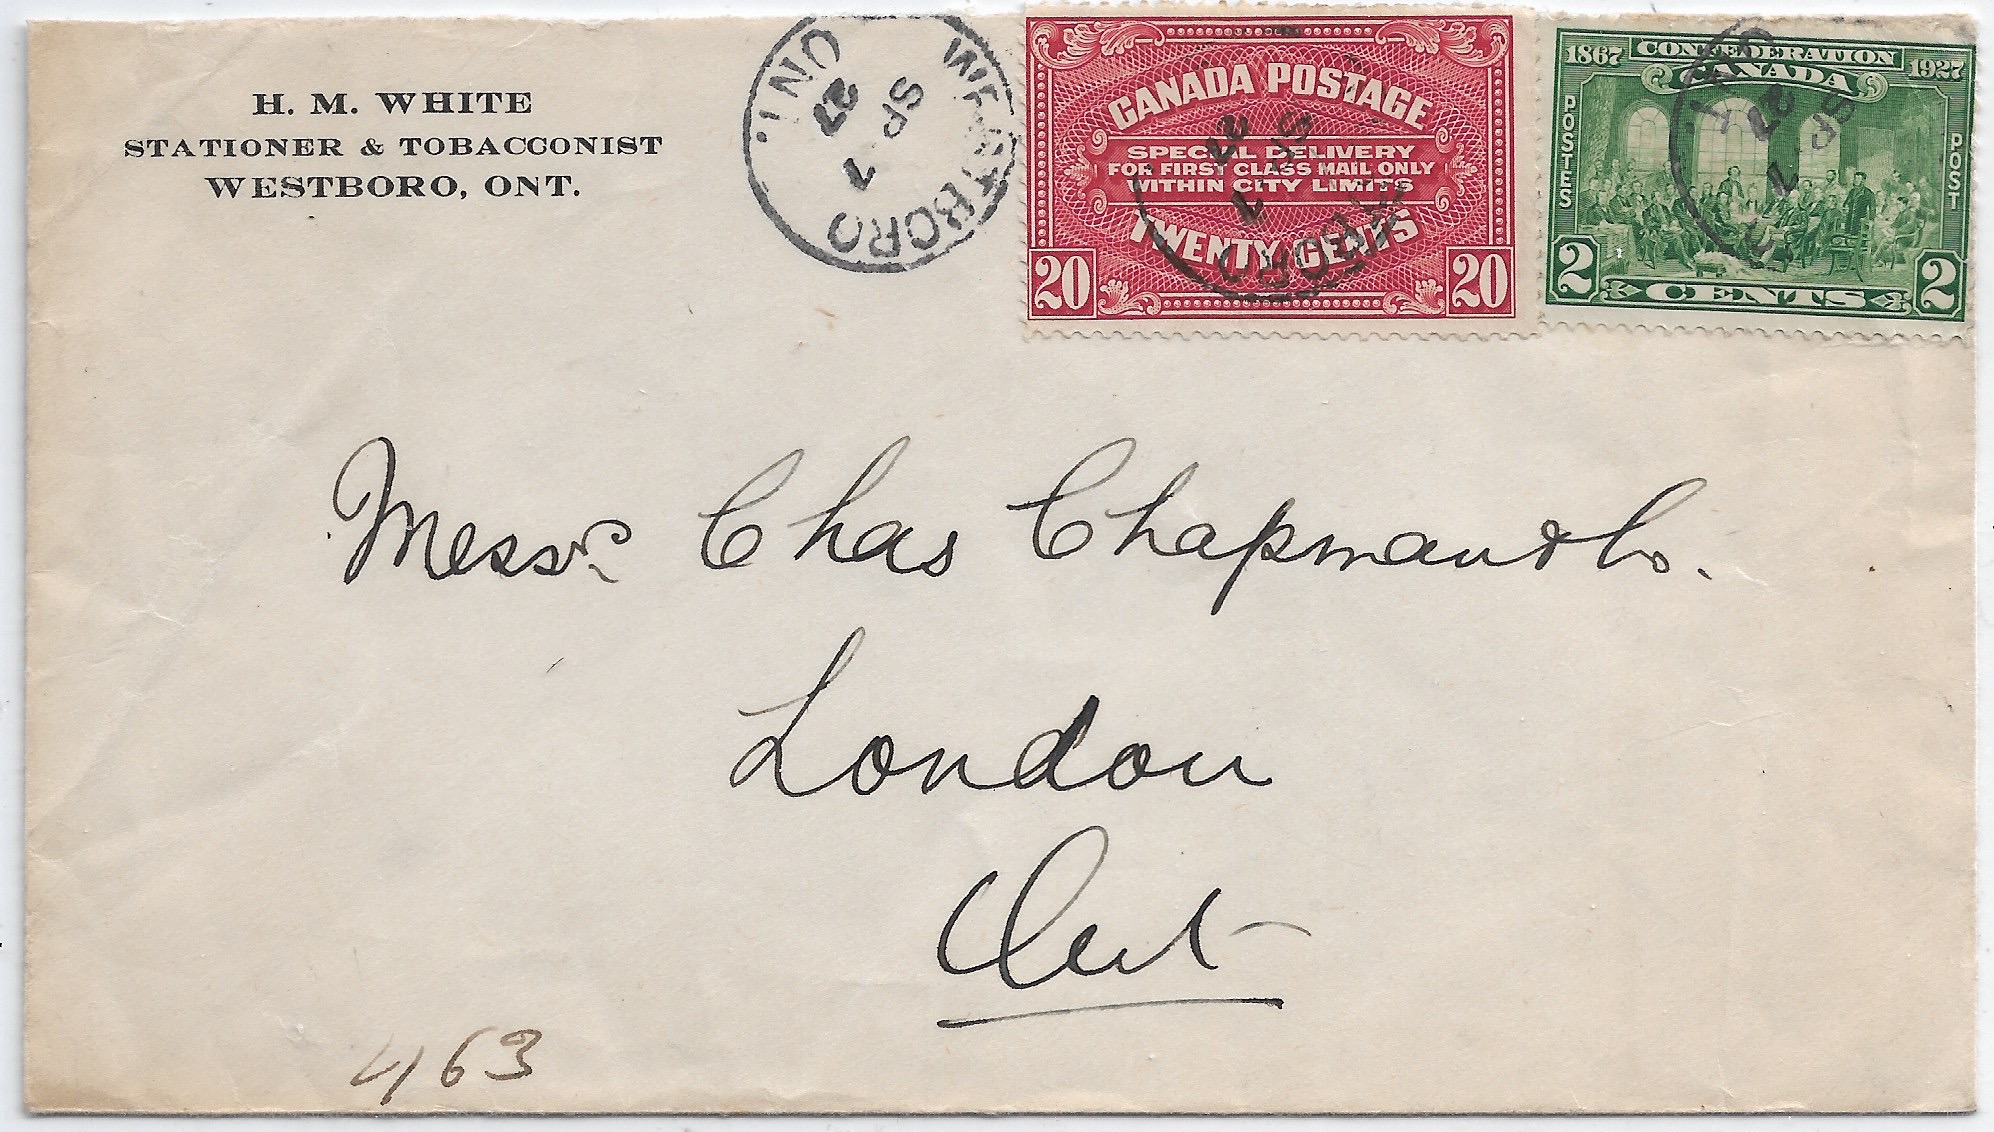 H. M. WHITE
STATIONER & TOBACCONIST
WESTBORO, ONT.
WESTBORO ONT.
SP 1
27
CANADA POSTAGE
SPECIAL DELIVERY
FOR FIRST CLASS MAIL ONLY
WITHIN CITY LIMITS
TWENTY CENTS
20 20
SP 1
27
1867 CONFEDERATION 1927
CANADA
POSTES POST
2 CENTS 2
SP 1
27
Messrs Chas Chapman & Co.
London
Ont
463